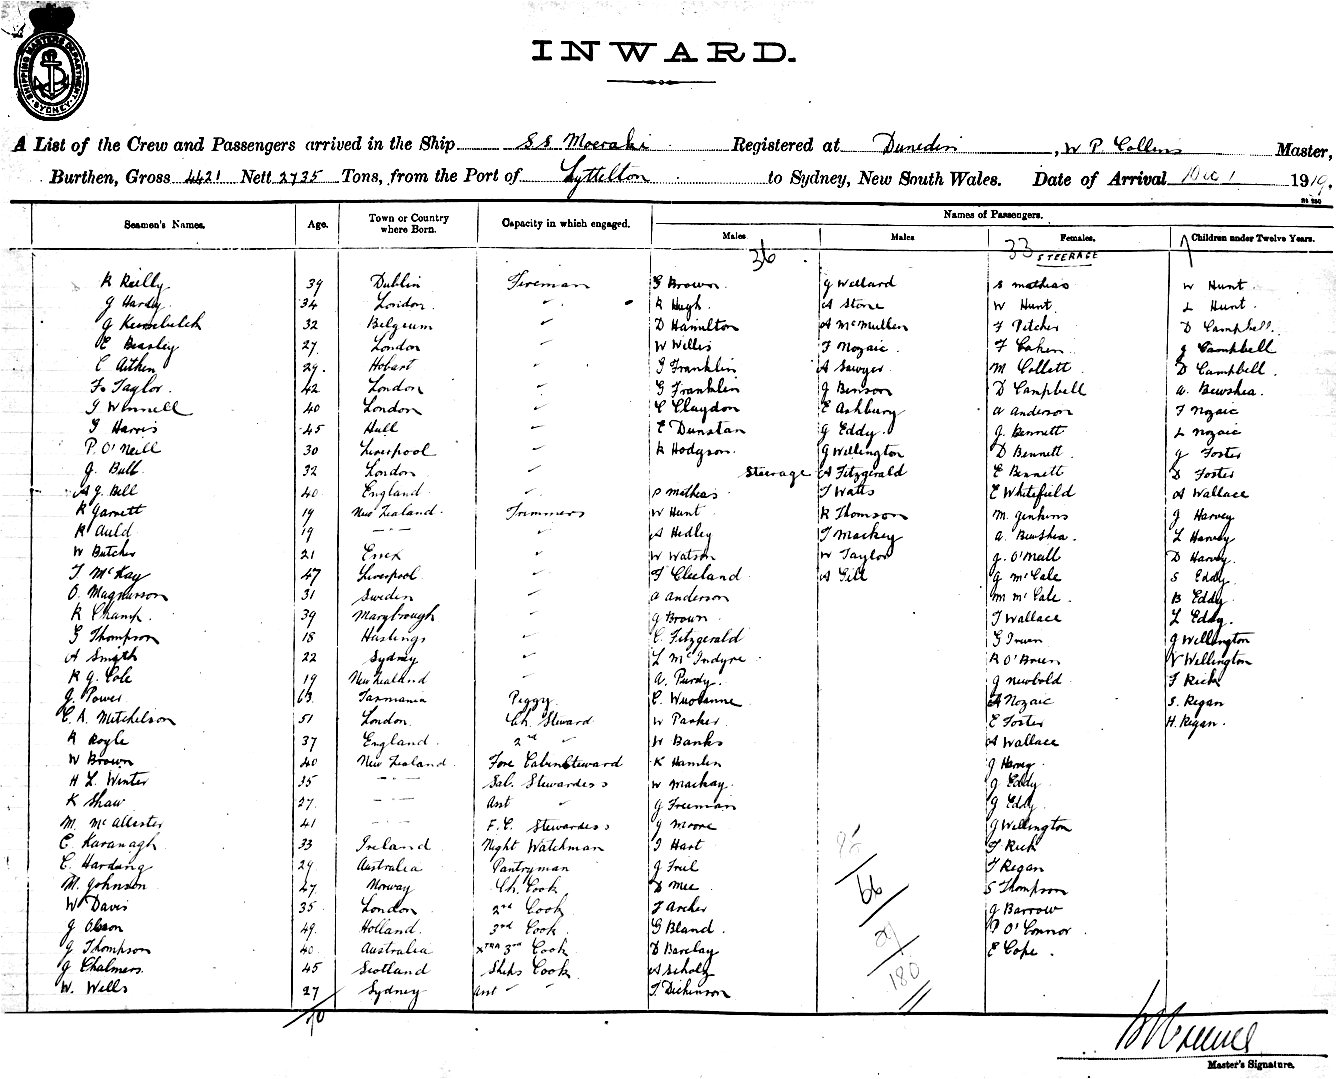 SHIPPING MASTERS DEPARTMENT SYDNEY
INWARD.
A List of the Crew and Passengers arrived in the Ship S S Moeraki Registered at Dunedin, W P Collins Master,
Burthen, Gross 4421 Nett 2735 Tons, from the Port of Lyttelton to Sydney, New South Wales. Date of Arrival Dec 1 1919.
Names of Passengers.
Seamen's Names. Age. Town or Country where Born. Capacity in which engaged. Males Males Females. Children under Twelve Years.
36 33 STEERAGE
R Reilly 39 Dublin Fireman G Brown G Wellard S Mathias W Hunt
G Hardy 34 London " R Hugh A Stone W Hunt L Hunt
32 Belgium " D Hamilton A McMullen F Pitcher D Campbell
E Beasley 27 London " W Willis F Nozaic F Caken J Campbell
C Aitken 29 Hobart " G Franklin A Sawyer M Collett D Campbell
F. Taylor 42 London " G Franklin J Benson D Campbell A. Bewshea
G Winnell 40 London " C Claydon E Ashbury A Anderson F Nozaic
G Harris 45 Hull " E Dunstan G Eddy J Bennett L Nozaic
P. O'Neill 30 Liverpool " R Hodgson G Wellington D Bennett J Foster
J. Bull 32 London " Steerage A Fitzgerald E Bennett D Foster
A J. Bell 40 England " S Mathias T Watts E Whitefield A Wallace
R Garnett 19 New Zealand Trimmers W Hunt R Thomson M. Jenkins J Harvey
R Auld 19 - - " A Hedley T Mackey A. Bewshea L Harvey
W Butcher 21 Essex " W Watson W Taylor J. O'Neill D Harvey
T McKay 47 Liverpool " F Cleeland A Gill J McCale S Eddy
O. Magnusson 31 Sweden " A Anderson M McCale B Eddy
R Champ 39 Marybrough " J Brown T Wallace L Eddy
G Thompson 18 Hastings " C. Fitzgerald G Irwin J Wellington
A Smyth 22 Sydney " L McIndyre R O'Brien N Wellington
R J. Cole 19 New Zealand " A. Purdy J Newbold F Rick
J. Power 63 Tasmania Peggy A Nozaic S. Regan
C. A. Mitchelson 51 London Ch. Steward W Parker E Foster H. Regan
R Royle 37 England 2nd " W Banks A Wallace
W Brown 40 New Zealand Fore Cabin Steward K Hamlen J Harvey
H L. Winter 35 - - Sal. Stewardess W Mackay J Eddy
K Shaw 27 - - Asst " J Freeman J Eddy
M. McAllister 41 - - F. C. Stewardess J Moore J Wellington
C Kavanagh 33 Ireland Night Watchman J Hart F Rick
C. Hardung 29 Australia Pantryman J Friel T Regan
M. Johnson 47 Norway Ch. Cook D Mee S Thompson
W Davis 35 London 2nd Cook F Archer J Barrow
J Olsson 49 Holland 3rd Cook G Bland P O'Connor
J Thompson 40 Australia XTRA 3rd Cook D Barclay E Cope
J Chalmers 45 Scotland Ships Cook A Scholz
W. Wells 27 Sydney Asst " " F. Dickinson
66
180
70
Master's Signature.